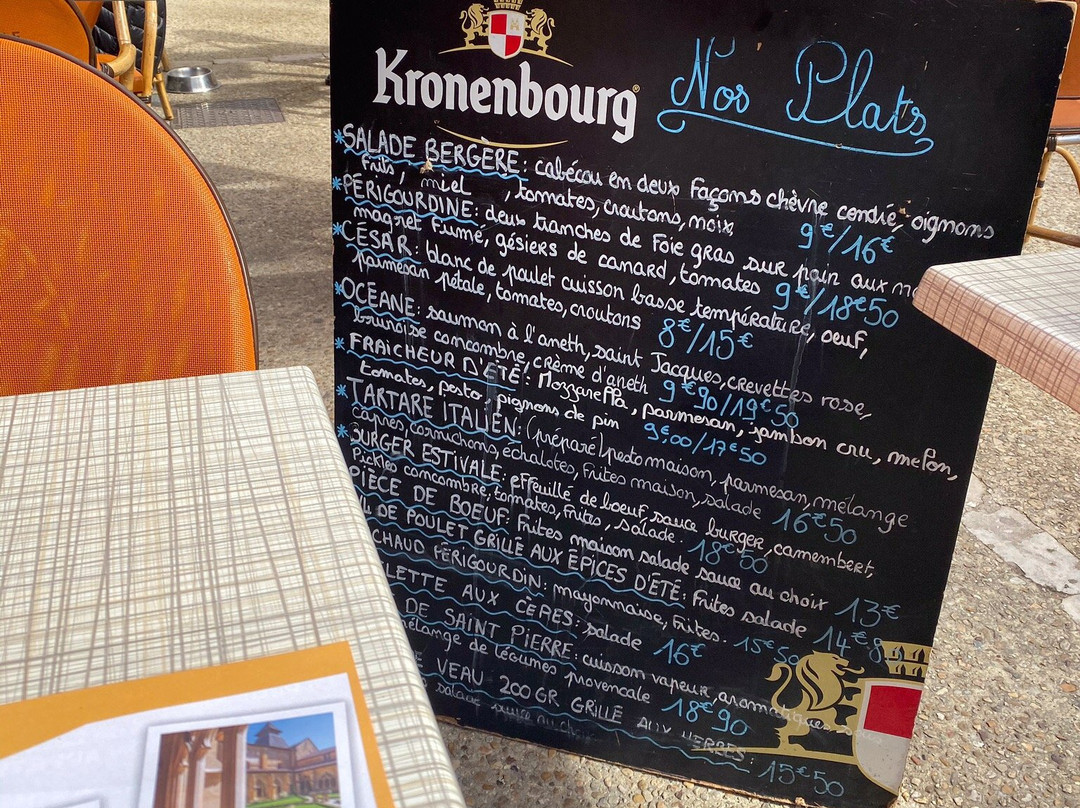 Kronenbourg
Nos Plats
*SALADE BERGÈRE: cabécou en deux Façons chèvre cendré, oignons
frits, miel, tomates, croutons, noix 9€/16€
*PÉRIGOURDINE: deux tranches de Foie gras sur pain aux
magret Fumé, gésiers de canard, tomates 9€/18€50
*CÉSAR: blanc de poulet cuisson basse température, oeuf,
parmesan pétale, tomates, croutons 8€/15€
*OCÉANE: saumon à l'aneth, saint Jacques, crevettes rose,
brunoise concombre, crème d'aneth 9€90/19€50
*FRAICHEUR D'ÉTÉ: Mozzarella, parmesan, jambon cru, melon,
tomates, pesto, pignons de pin 9€,00/17€50
*TARTARE ITALIEN: (préparé) pesto maison, parmesan, mélange
capres, cornichons, échalotes, frites maison, salade 16€50
*BURGER ESTIVALE: effeuillé de boeuf, sauce burger, camembert,
Pickles concombre, tomates, Frites, salade. 18€50
PIÈCE DE BOEUF: Frites maison salade sauce au choix 13€
DE POULET GRILLÉ AUX ÉPICES D'ÉTÉ: Frites salade 14€
CHAUD PÉRIGOURDIN: mayonnaise, Frites. 15€50
LETTE AUX CÈPES: salade 16€
DE SAINT PIERRE: cuisson vapeur, aromatiques
mélange de légumes provencale 18€90
VEAU 200GR GRILLÉ AUX HERBES:
salade sauce au choix 15€50